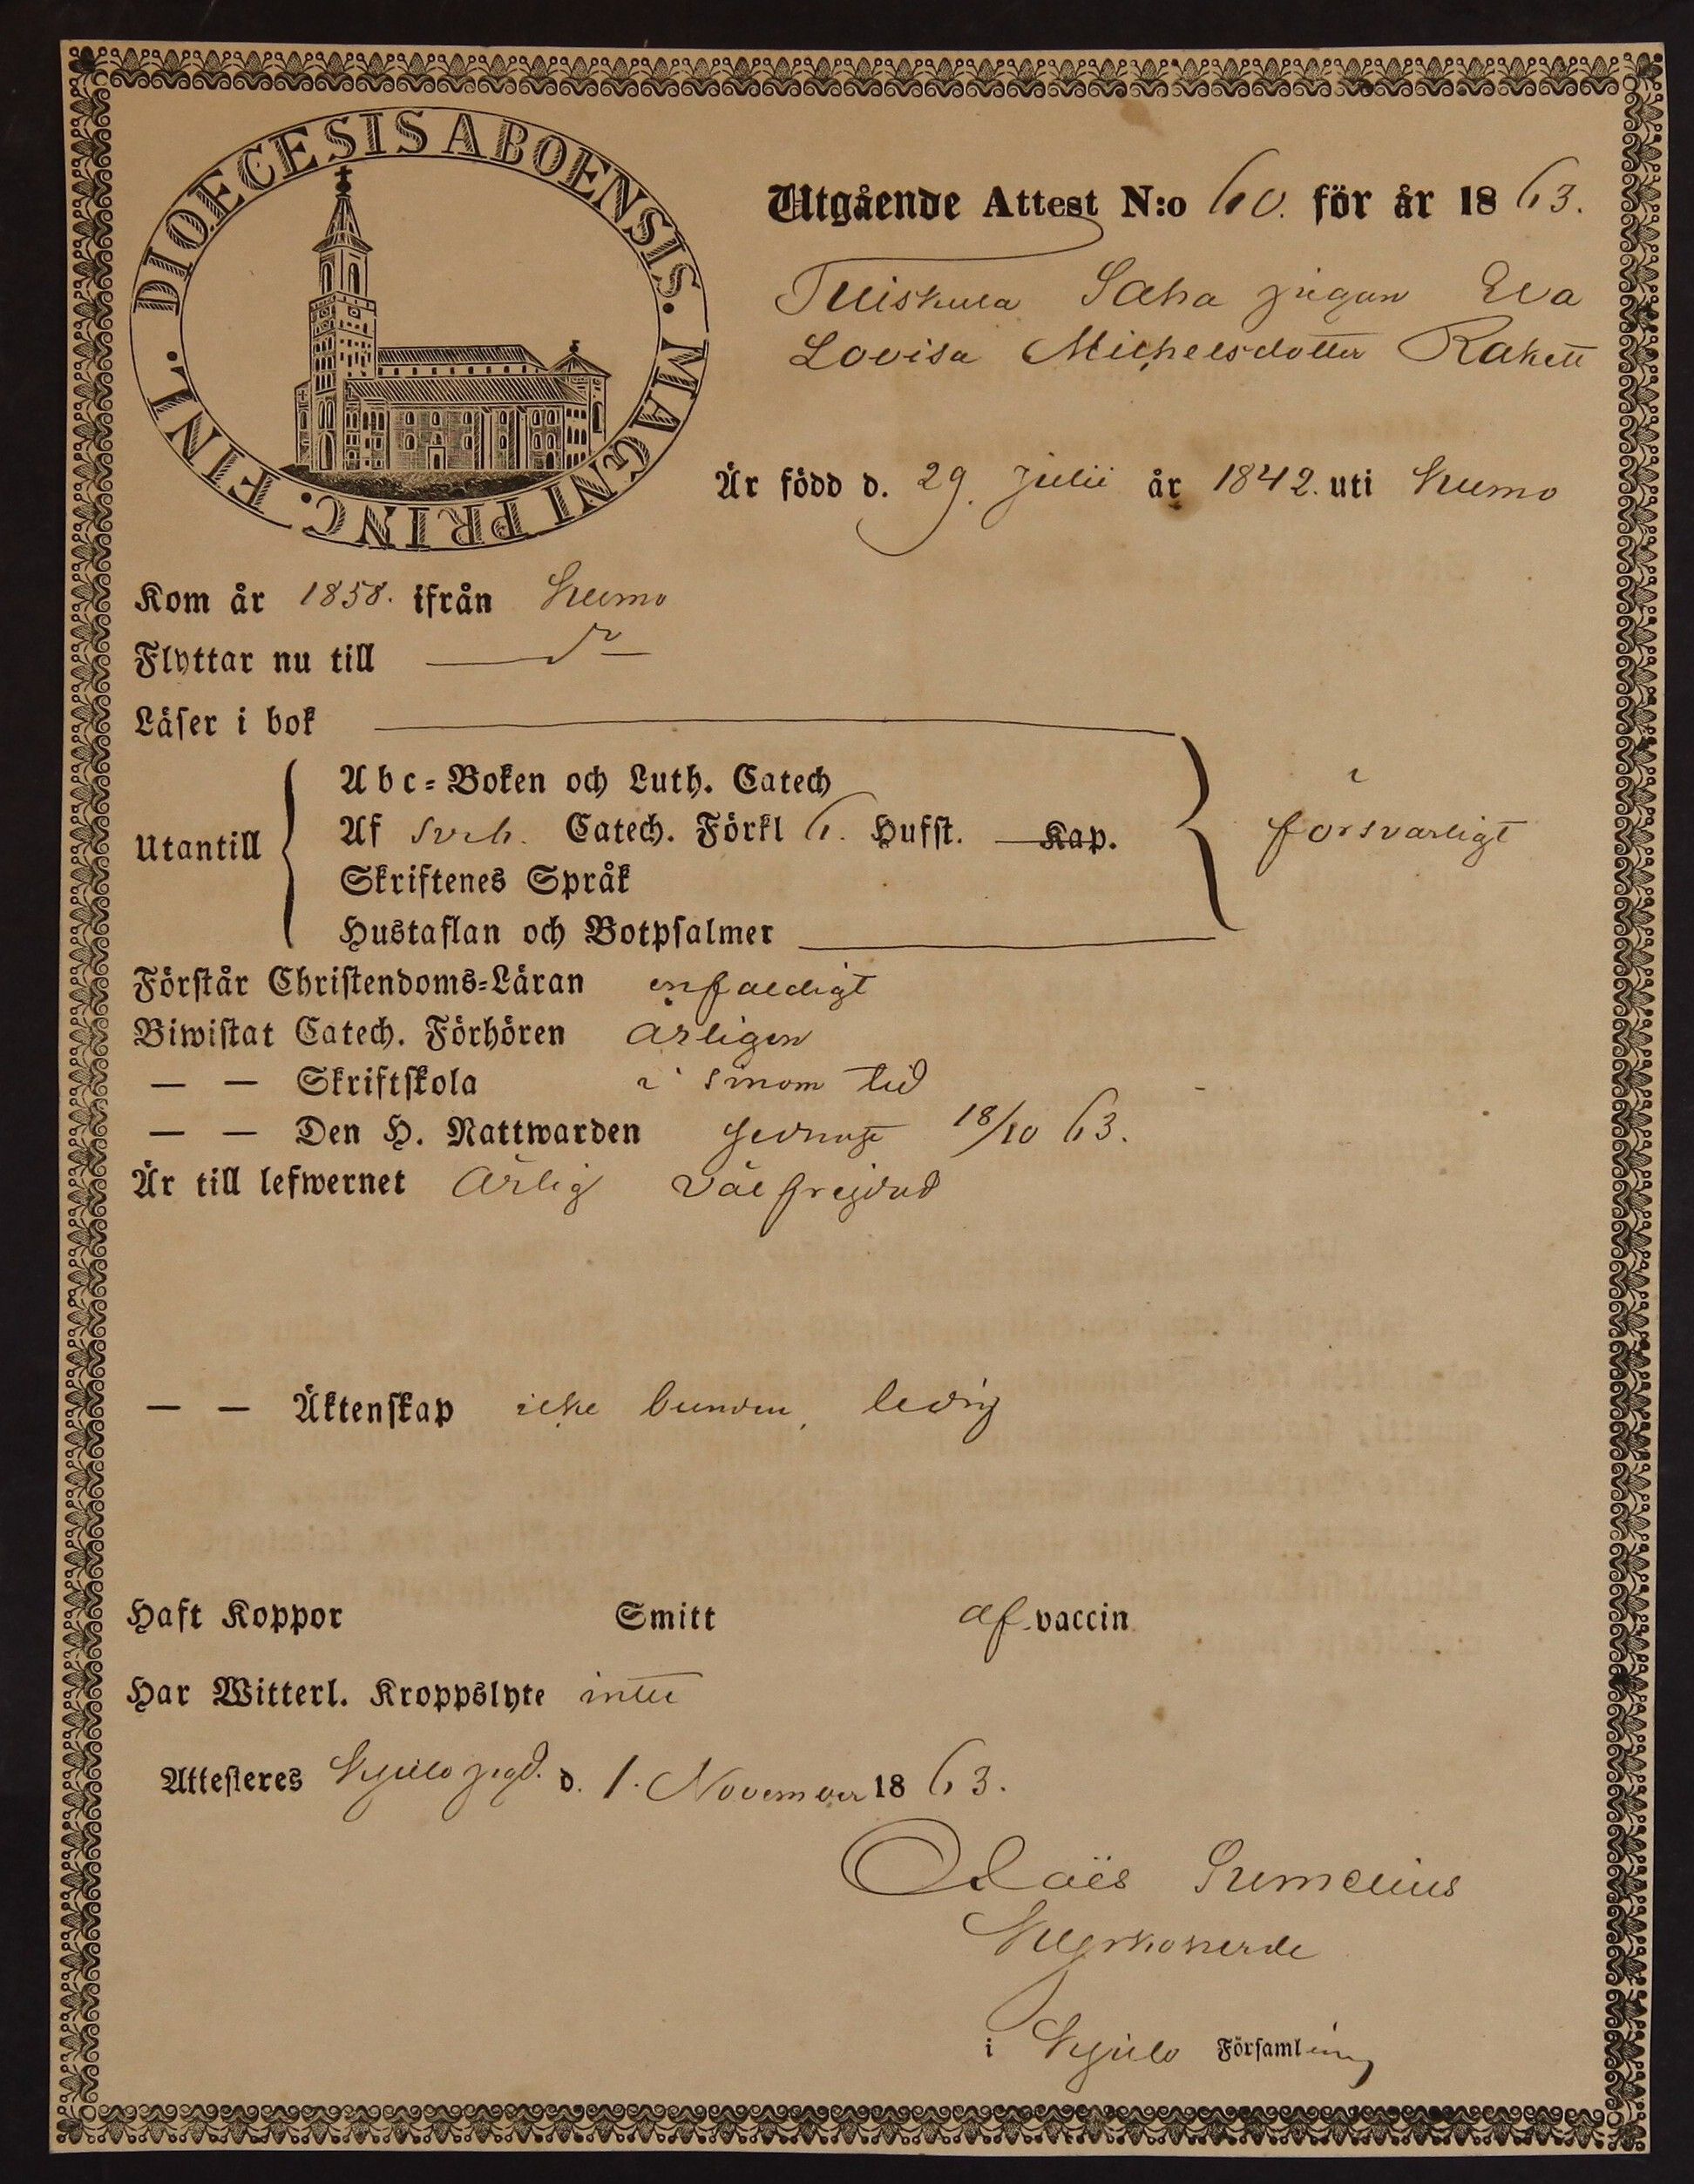 DIOECESIS ABOENSIS. MAGNI PRINC. FINL.
Utgående Attest N:o 60. för år 1863.
Tuiskula Saha pigan Eva
Lovisa Michelsdotter Rakett
Är född d. 29. Julii år 1842. uti Kumo
Kom år 1858. ifrån Kumo
Flyttar nu till — do —
Läser i bok
Utantill
Abc-Boken och Luth. Catech
Af Sveb. Catech. Förkl 6. Hufst. Kap.
Skriftenes Språk
Hustaflan och Botpsalmer
försvarligt
Förstår Christendoms-Läran enfaldigt
Biwistat Catech. Förhören årligen
— — Skriftskola i sinom tid
— — Den H. Nattwarden sednast 18/10 63.
Är till lefwernet ärlig välfrejdad
— — Äktenskap icke bunden, ledig
Haft Koppor Smitt af vaccin
Har Witterl. Kroppslyte intet
Attesteres Kjulo pgd. d. 1. November 1863.
Kyrkoherde
i Kjulo Församling